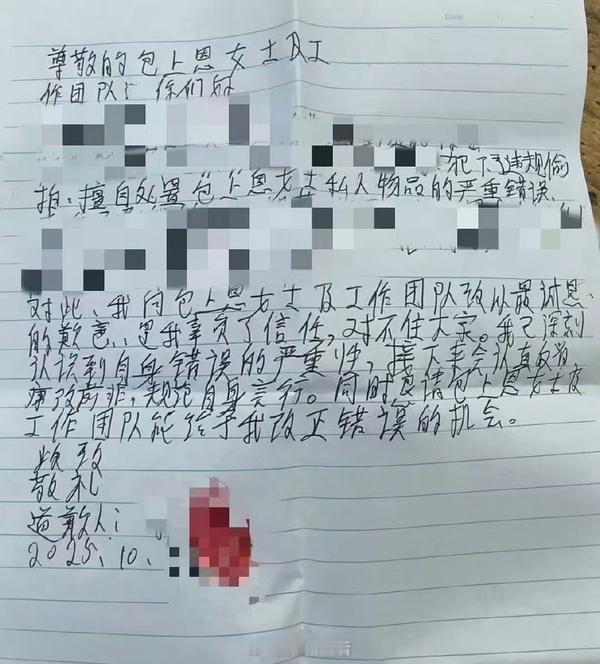 Date
尊敬的包上恩女士及工
作团队：你们好
犯下了违规偷
拍、擅自处置包上恩女士私人物品的严重错误、
对此、我向包上恩女士及工作团队致以最诚恳
的歉意、是我辜负了信任，对不住大家。我已深刻
认识到自身错误的严重性，接下来会认真反省
痛改前非，规范自身言行。同时恳请包上恩女士及
工作团队能给予我改正错误的机会。
此致
敬礼
道歉人：
2025、10、